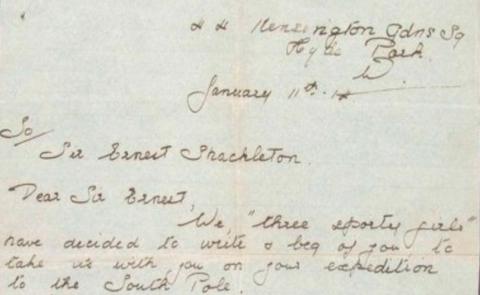 44 Kensington Gdns Sq
Hyde Park.
W.
January 11th. 14
To/
Sir Ernest Shackleton.
Dear Sir Ernest,
We, "three sporty girls"
have decided to write & beg of you to
take us with you on your expedition
to the South Pole.